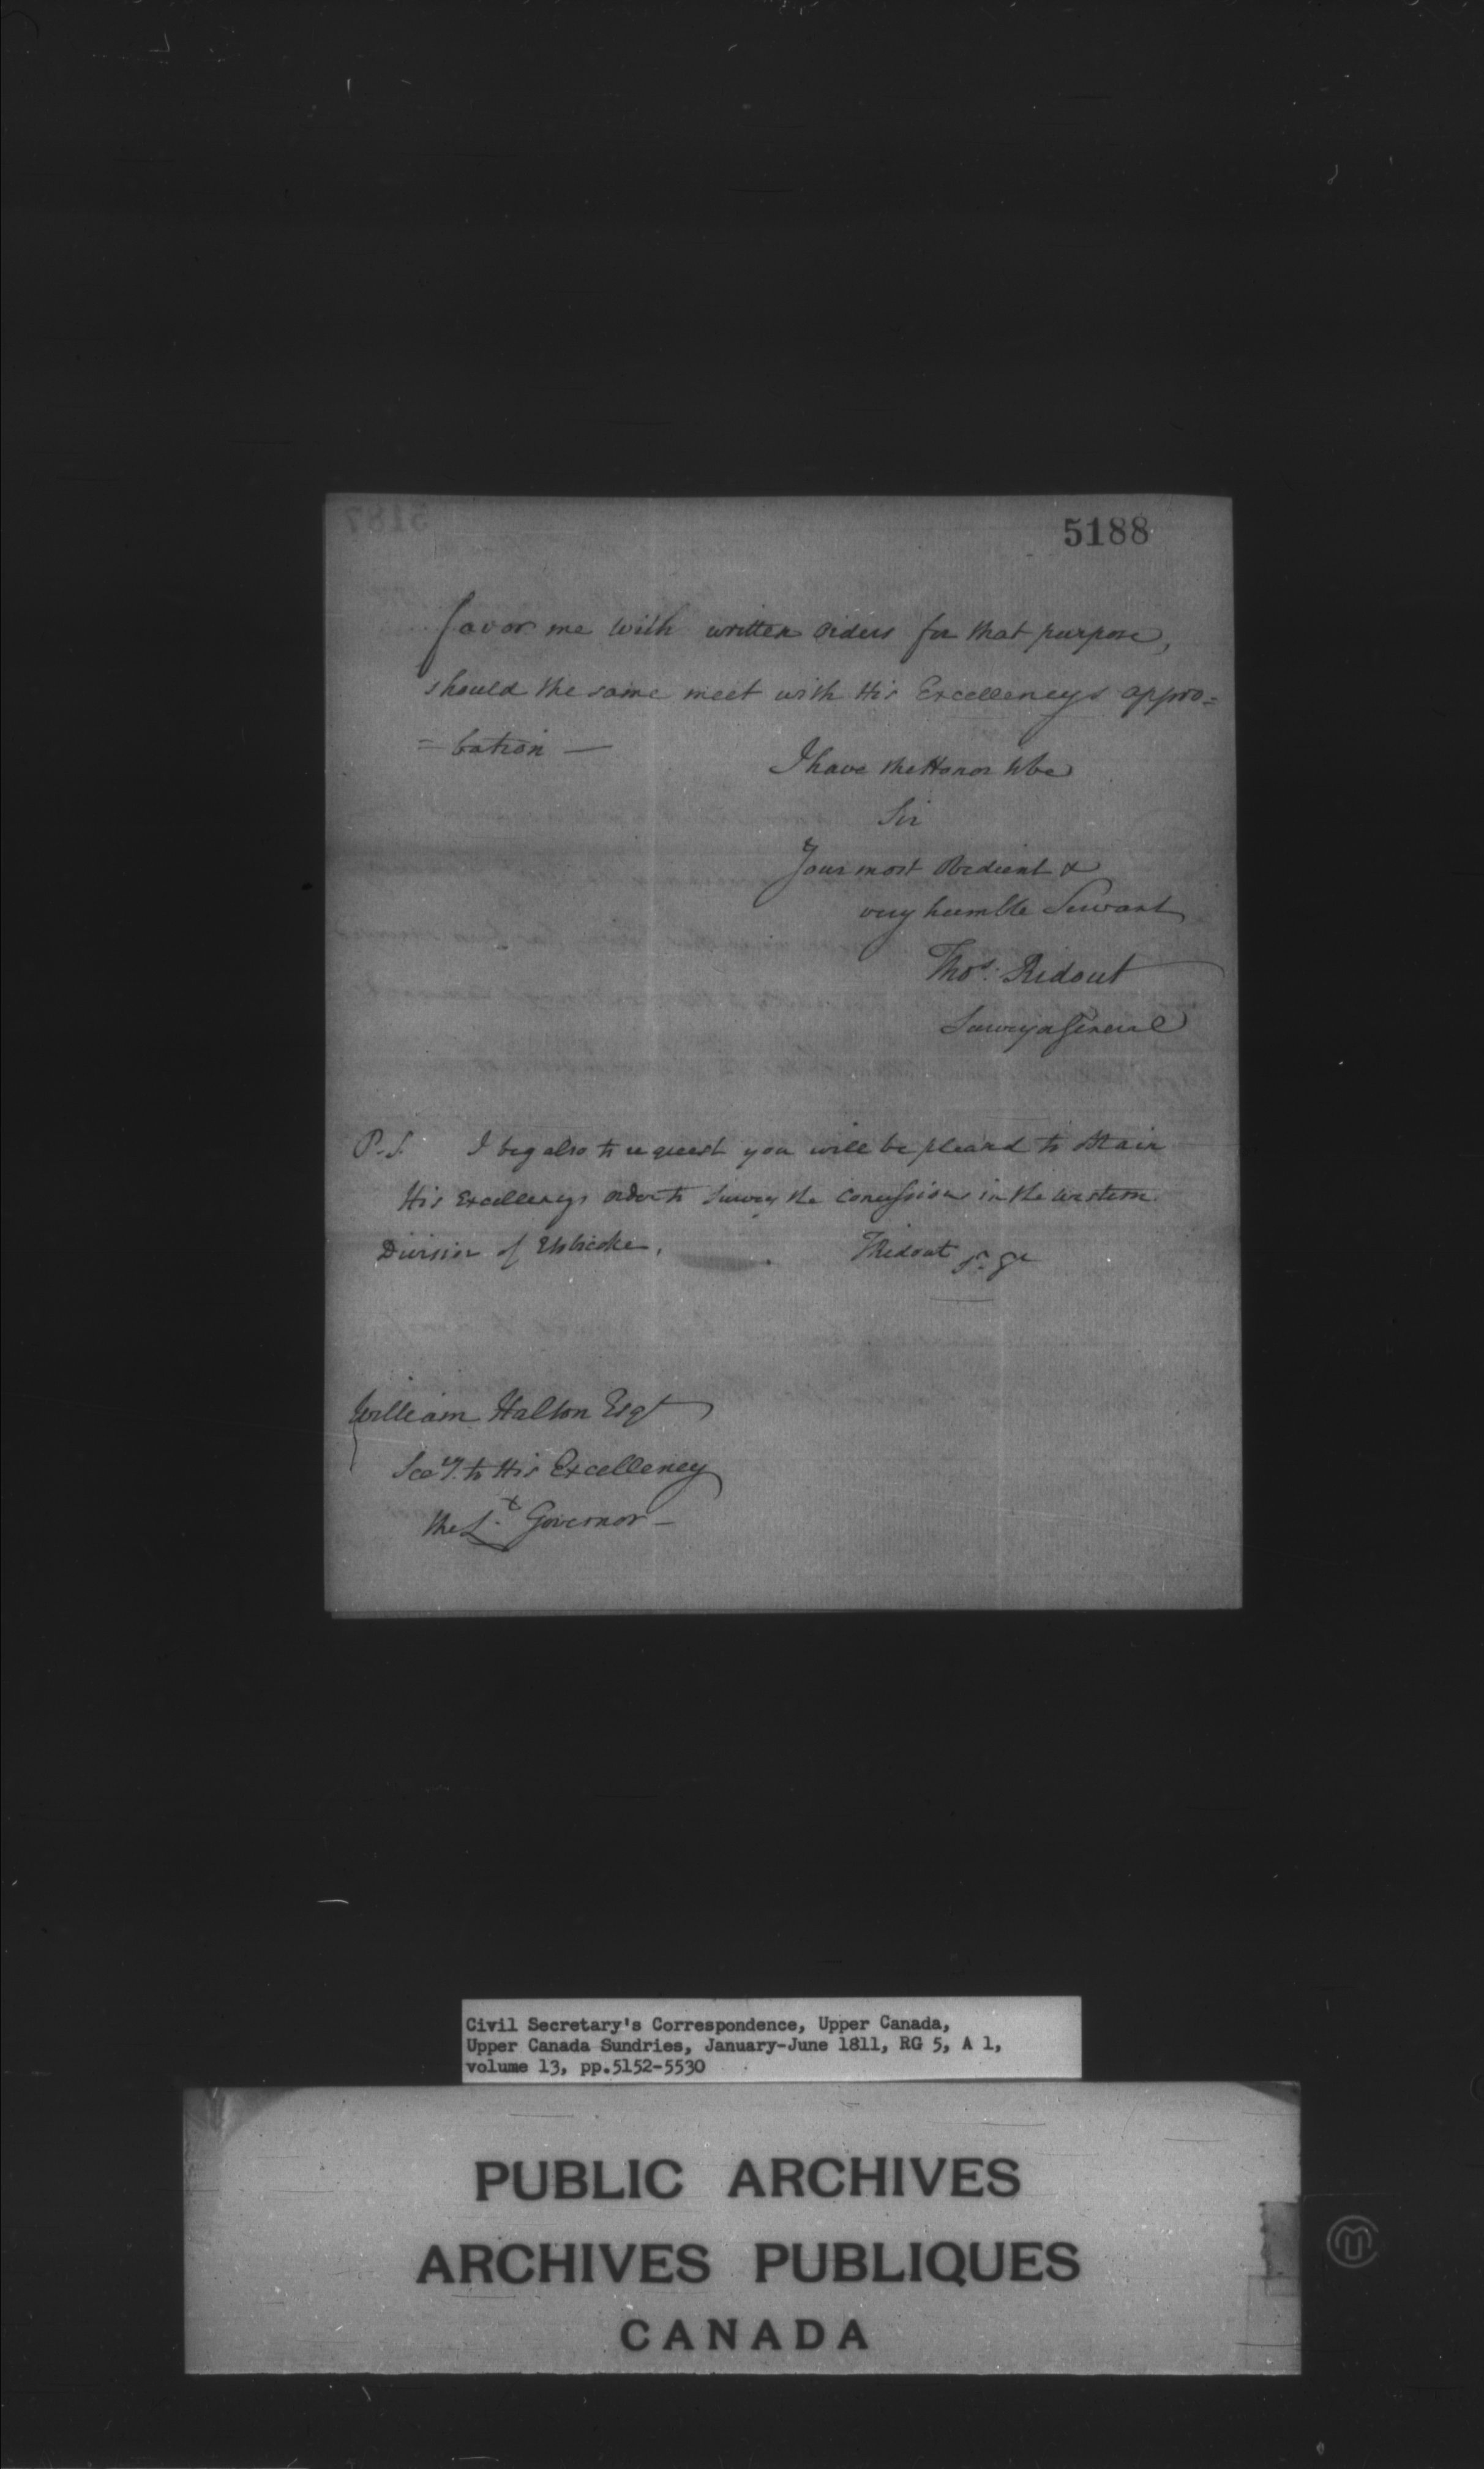 5188
favor me with written orders for that purpose,
should the same meet with His Excellencys appro=
=bation —
I have the Honor to be
Sir
Your most Obedient &
very humble Servant
Thos. Ridout
Surveyor General
P.S. I beg also to request you will be pleased to obtain
His Excellencys order to Survey the Concessions in the Western
Division of Etobicoke.
TRidout
William Halton Esqr
Secy. to His Excellency
the Lt. Governor —
Civil Secretary's Correspondence, Upper Canada,
Upper Canada Sundries, January-June 1811, RG 5, A 1,
volume 13, pp.5152-5530
PUBLIC ARCHIVES
ARCHIVES PUBLIQUES
CANADA